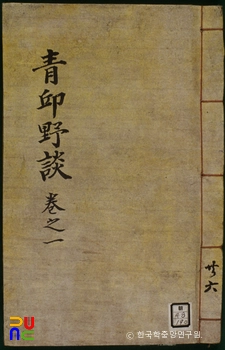 青邱野談
卷之一
共六
© 한국학중앙연구원